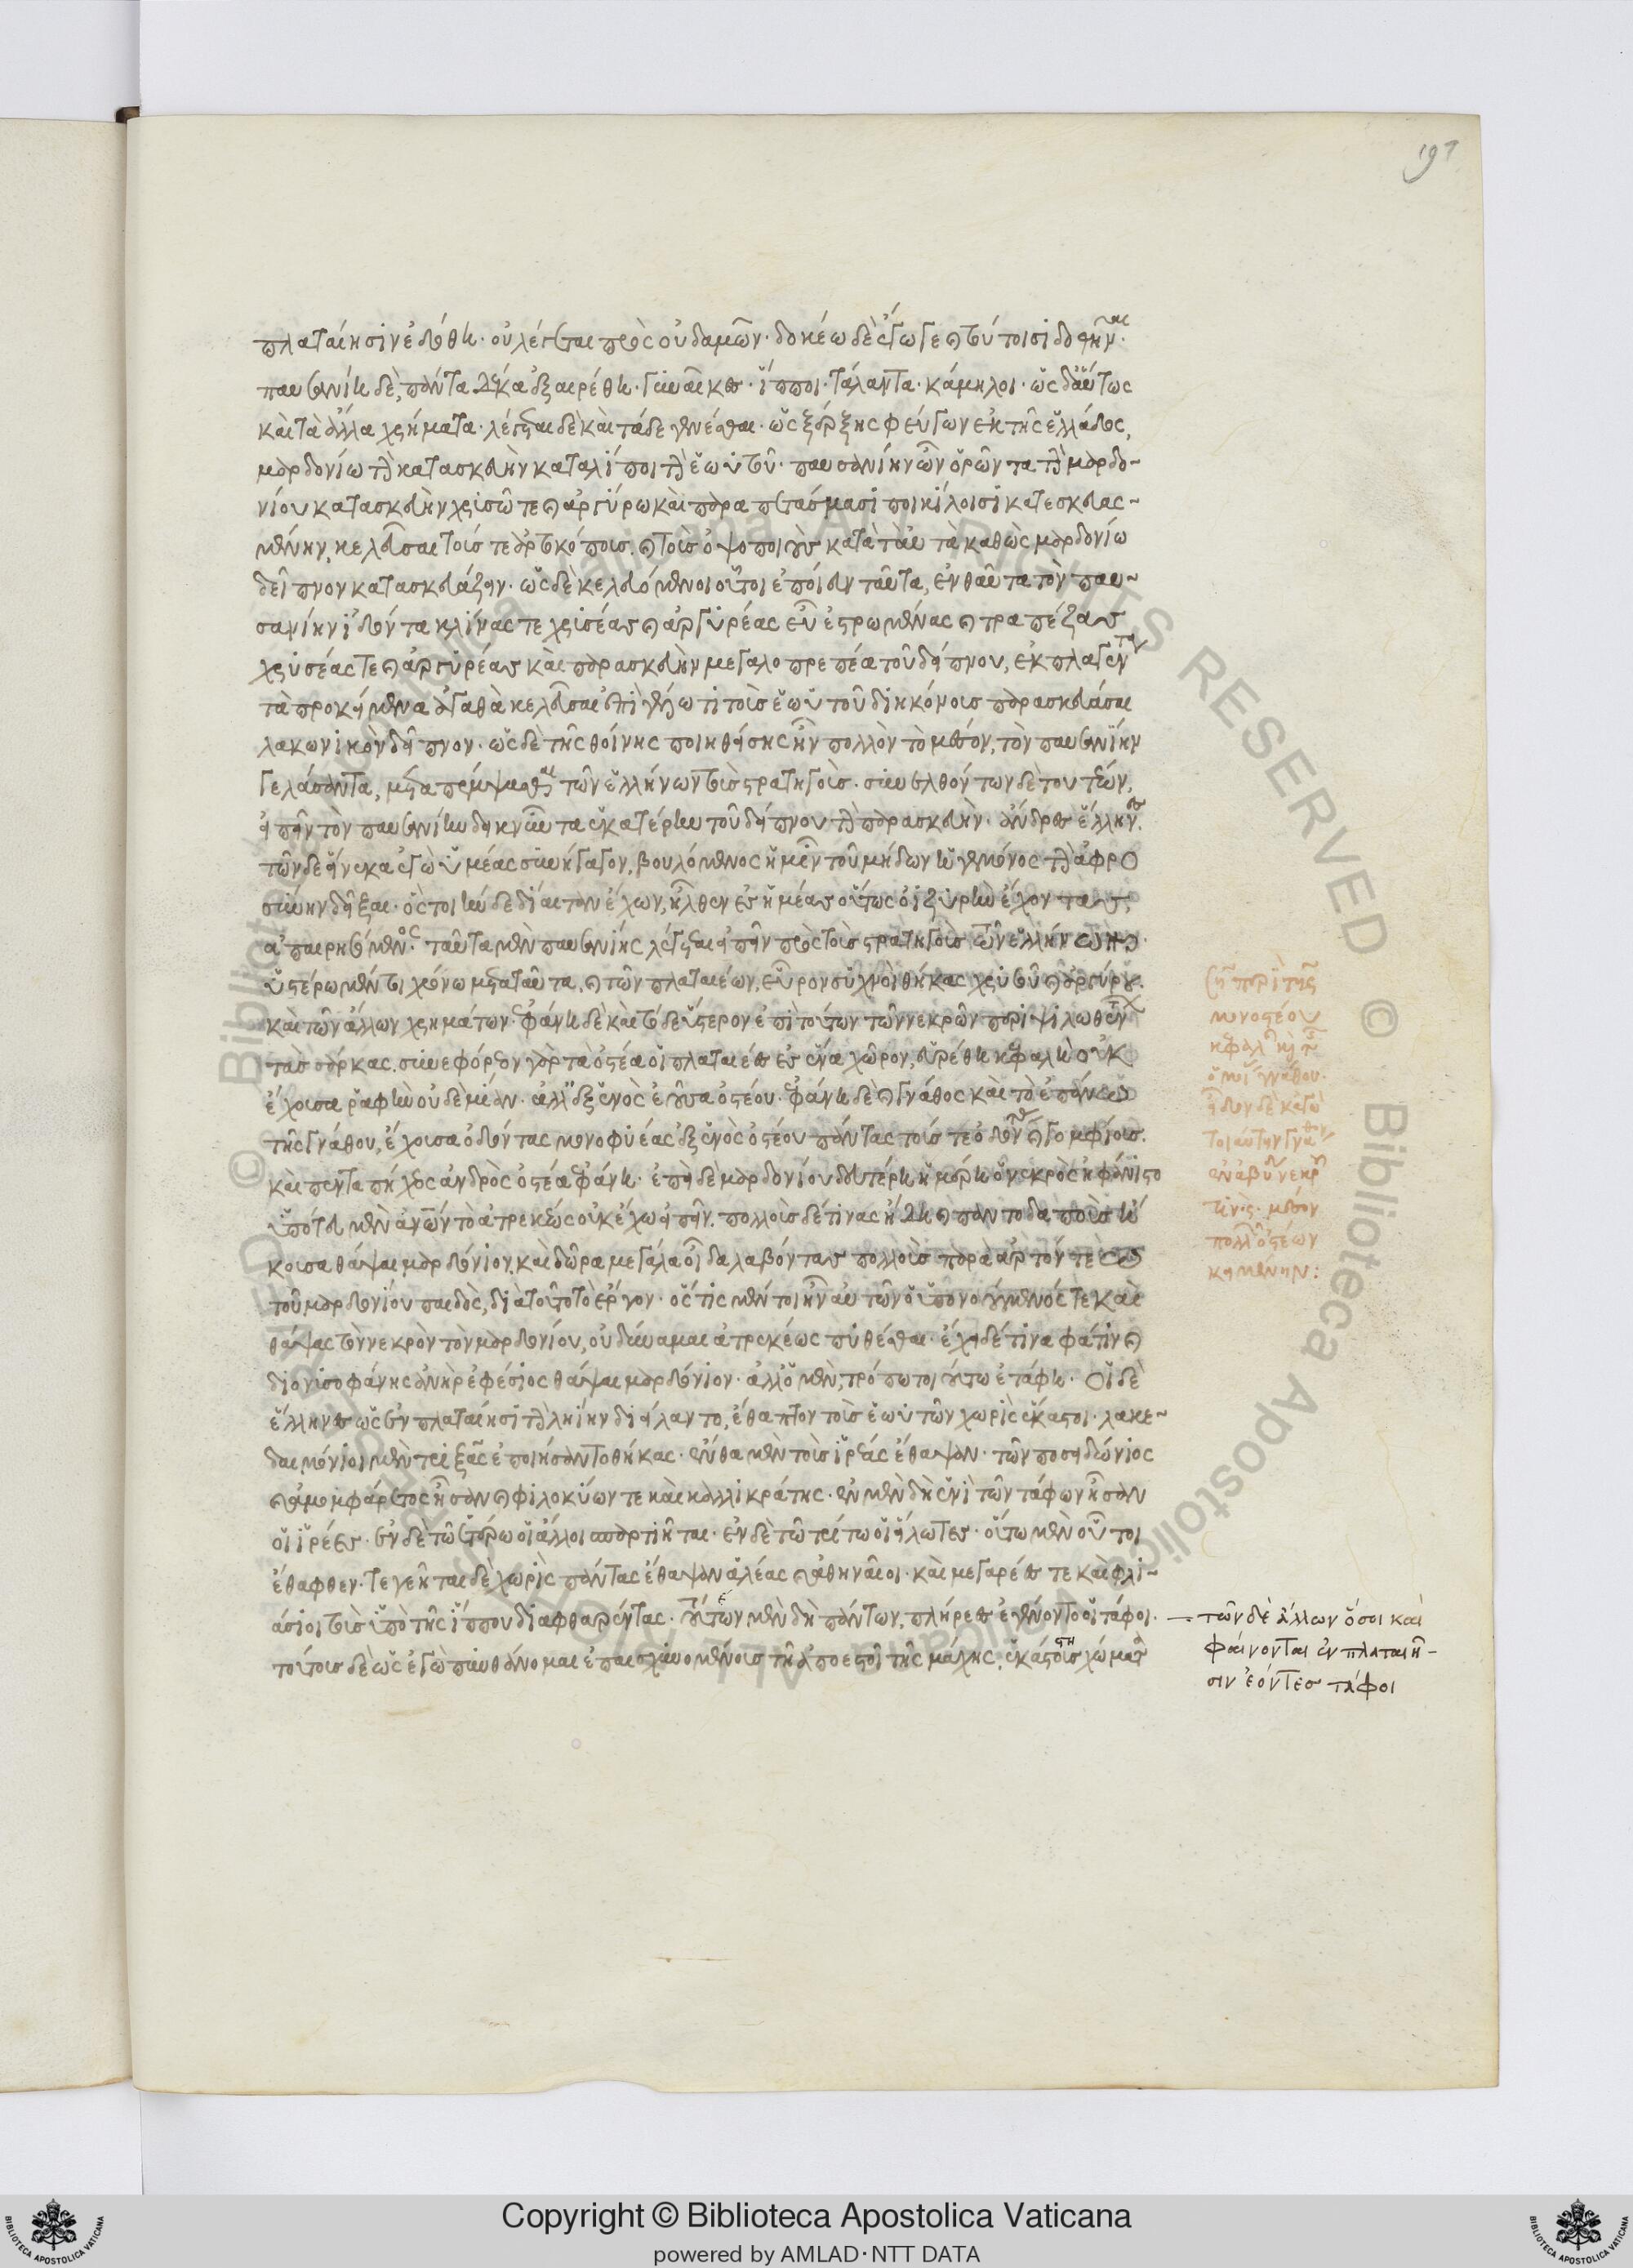 197
πλαταιῆσιν ἐδόθη. οὐ λέγεται πρὸς οὐδαμῶν. δοκέω δὲ ἔγωγε καὶ τούτοισι δοθῆναι.
παυσανίῃ δὲ, πάντα δέκα ἐξαιρέθη. γυναῖκες. ἵπποι. τάλαντα. κάμηλοι. ὣς δ' αὕτως
καὶ τὰ ἄλλα χρήματα. λέγεται δὲ καὶ τάδε γενέσθαι. ὡς ξέρξης φεύγων ἐκ τῆς ἑλλάδος,
μαρδονίω τὴν κατασκευὴν καταλίποι τὴν ἑωυτοῦ. παυσανίην ὦν ὁρῶντα τὴν μαρδο-
νίου κατασκευὴν χρυσῶ τε καὶ ἀργύρω καὶ παραπετάσμασι ποικίλοισι κατεσκευασ-
μένην, κελεῦσαι τούς τε ἀρτοκόπους καὶ τοὺς ὀψοποιοὺς κατὰ ταυτὰ καθὼς μαρδονίω
δεῖπνον κατασκευάζειν. ὡς δὲ κελευόμενοι οὗτοι ἐποίευν ταῦτα, ἐνθαῦτα τὸν παυ-
σανίην ἰδόντα κλίνας τε χρυσέας καὶ ἀργυρέας εὖ ἐστρωμένας καὶ τραπέζας
χρυσέας τε καὶ ἀργυρέας καὶ παρασκευὴν μεγαλοπρεπέα τοῦ δείπνου, ἐκπλαγέντα
τὰ προκείμενα ἀγαθὰ κελεῦσαι ἐπὶ γέλωτι τοὺς ἑωυτοῦ διηκόνους παρασκευάσαι
λακωνικὸν δεῖπνον. ὡς δὲ τῆς θοίνης ποιηθείσης ἦν πολλὸν τὸ μέσον, τὸν παυσανίην
γελάσαντα, μεταπέμψασθαι τῶν ἑλλήνων τοὺς στρατηγούς. συνελθόντων δὲ τουτέων,
εἰπεῖν τὸν παυσανίην δεικνῦντα ἐς ἑκατέρην τοῦ δείπνου τὴν παρασκευὴν. ἄνδρες ἕλληνες.
τῶνδε εἵνεκα ἐγὼ ὑμέας συνήγαγον, βουλόμενος ἡμῖν τοῦ μήδων ἡγεμόνος τὴν ἀφρο
σύνην δεῖξαι. ὃς τοιήνδε δίαιταν ἔχων, ἦλθεν ἐς ἡμέας οὕτως ὀϊζυρὴν ἔχοντας,
ἀπαιρησόμενος. ταῦτα μὲν παυσανίης λέγεται εἰπεῖν πρὸς τοὺς στρατηγοὺς τῶν ἑλλήνων.
ὑστέρω μέντοι χρόνω μετὰ ταῦτα, καὶ τῶν πλαταιέων, εὗρον συχνοὶ θήκας χρυσοῦ καὶ ἀργύρου.
καὶ τῶν ἄλλων χρημάτων. ἐφάνη δὲ καὶ τόδε ὕστερον ἐπὶ τούτων τῶν νεκρῶν περιψιλωθέντων
τὰς σάρκας. συνεφόρεον γὰρ τὰ ὀστέα οἱ πλαταιέες ἐς ἕνα χῶρον, εὑρέθη κεφαλὴ οὐκ
ἔχουσα ῥαφὴν οὐδεμίαν. ἀλλ' ἐξ ἑνὸς ἐοῦσα ὀστέου. ἐφάνη δὲ καὶ γνάθος καὶ τὸ ἐπάνω
τῆς γνάθου, ἔχουσα ὀδόντας μονοφυέας ἐξ ἑνὸς ὀστέου πάντας τούς τε ὀδόντας καὶ γομφίους.
καὶ πενταπήχεος ἀνδρὸς ὀστέα ἐφάνη. ἐπεὶ δὲ μαρδονίου δευτέρη ἡμέρη ὁ νεκρὸς ἠφάνιστο
ὑπότευ μὲν ἀνθρώπων τὸ ἀτρεκέως οὐκ ἔχω εἰπεῖν. πολλοὺς δέ τινας ἤδη καὶ παντοδαποὺς ἤ
κουσα θάψαι μαρδόνιον. καὶ δῶρα μεγάλα οἶδα λαβόντας πολλοὺς παρὰ ἀρτόντεω
τοῦ μαρδονίου παιδὸς, διὰ τοῦτο τὸ ἔργον. ὅστις μέντοι ἦν αὐτῶν ὁ ὑπονοούμενός τε καὶ
θάψας τὸν νεκρὸν τὸν μαρδονίου, οὐ δύναμαι ἀτρεκέως πυθέσθαι. ἔχει δέ τινα φάτιν καὶ
διονυσοφάνης ἀνὴρ ἐφέσιος θάψαι μαρδόνιον. ἀλλ' ὁ μὲν, τρόπω τοιούτω ἐτάφη. οἱ δὲ
ἕλληνες ὡς ἐν πλαταιῆσι τὴν ληίην διείλαντο, ἔθαπτον τοὺς ἑωυτῶν χωρὶς ἕκαστοι. λακε-
δαιμόνιοι μὲν τριξὰς ἐποιήσαντο θήκας. ἔνθα μὲν τοὺς ἰρέας ἔθαψαν. τῶν ποσειδώνιος
καὶ ἀμομφάρετος ἦσαν καὶ φιλοκύων τε καὶ καλλικράτης. ἐν μὲν δὴ ἑνὶ τῶν τάφων ἦσαν
οἱ ἰρέες. ἐν δὲ τῶ ἑτέρω οἱ ἄλλοι σπαρτιῆται. ἐν δὲ τῶ τρίτω οἱ εἵλωτες. οὕτω μὲν οὗτοι
ἔθαφθεν. τεγεῆται δὲ χωρὶς πάντας ἔθαψαν ἁλέας καὶ ἀθηναῖοι. καὶ μεγαρέες τε καὶ φλι-
άσιοι τοὺς ὑπὸ τῆς ἵππου διαφθαρέντας. τούτων μὲν δὴ πάντων, πλήρεες ἐγένοντο οἱ τάφοι.
τούτους δὲ ὡς ἐγὼ πυνθάνομαι ἐπαισχυνομένους τῆ ἀπεστοῖ τῆς μάχης, ἑκάστους χώματα
(ση) περὶ τῆς
μονοστέου
κεφαλῆς καὶ τῆς
ὁμοίου γνάθου.
εἶδον δὲ κἀγὼ
τοιαύτην γνάθον
πολλῶν ὀστέων
κειμένην:
τῶν δὲ ἄλλων ὅσοι καὶ
φαίνονται ἐν πλαταιῆ-
σιν ἐόντες τάφοι
Copyright © Biblioteca Apostolica Vaticana
powered by AMLAD·NTT DATA